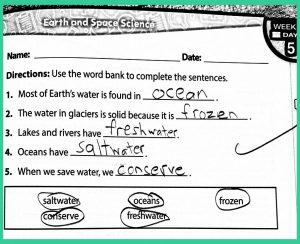 Earth and Space Science
WEEK
DAY
5
Name: Date:
Directions: Use the word bank to complete the sentences.
1. Most of Earth's water is found in ocean.
2. The water in glaciers is solid because it is frozen.
3. Lakes and rivers have freshwater.
4. Oceans have saltwater.
5. When we save water, we conserve.
saltwater oceans frozen
conserve freshwater